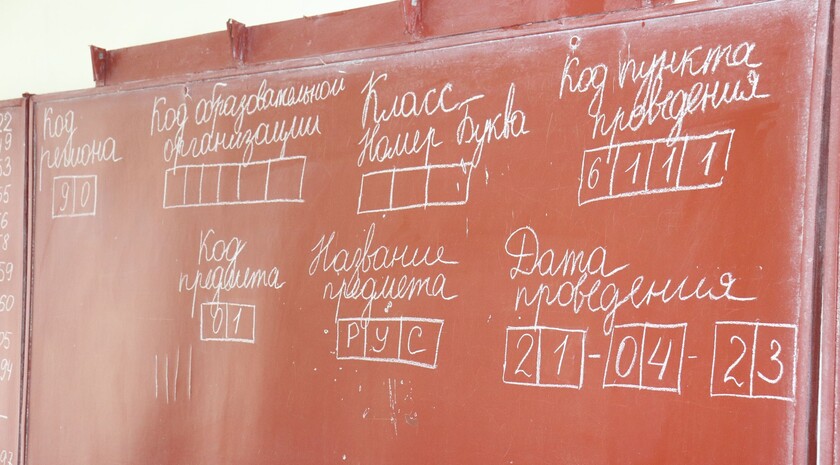 Код
региона
90
Код образовательной
организации
Класс
Номер Буква
Код пункта
проведения
6111
Код
предмета
01
Название
предмета
РУС
Дата
проведения
21-04-23